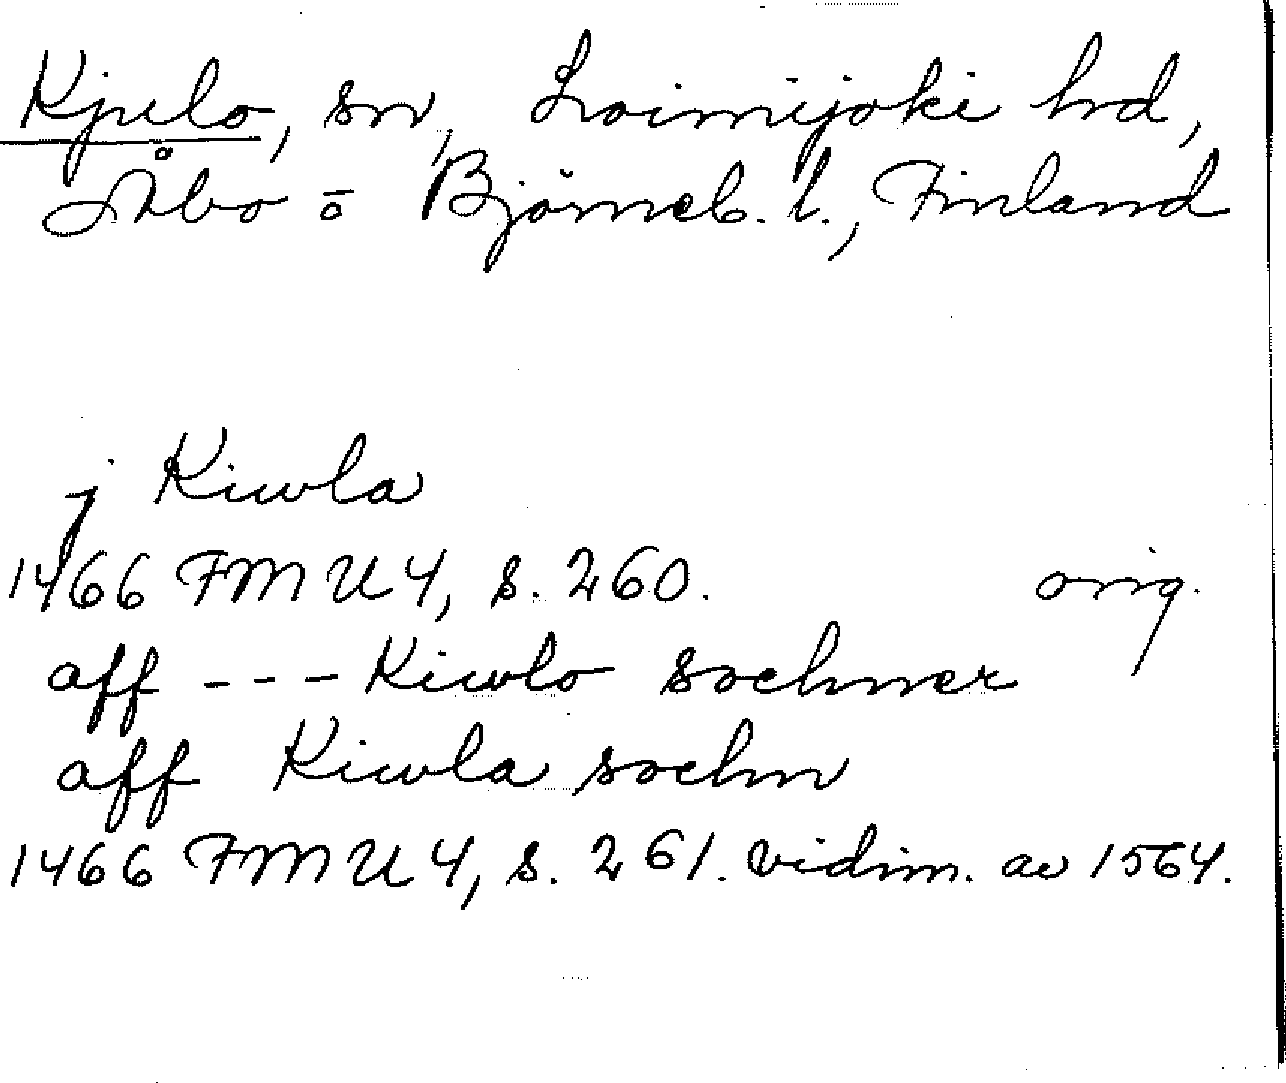 Kjulo, sn, Loimijoki hd,
Åbo o Björneb. l., Finland
j Kiwla
1466 FMU 4, s. 260. orig.
aff --- Kiwlo sochner
aff Kiwla sochn
1466 FMU 4, s. 261. vidim. av 1564.